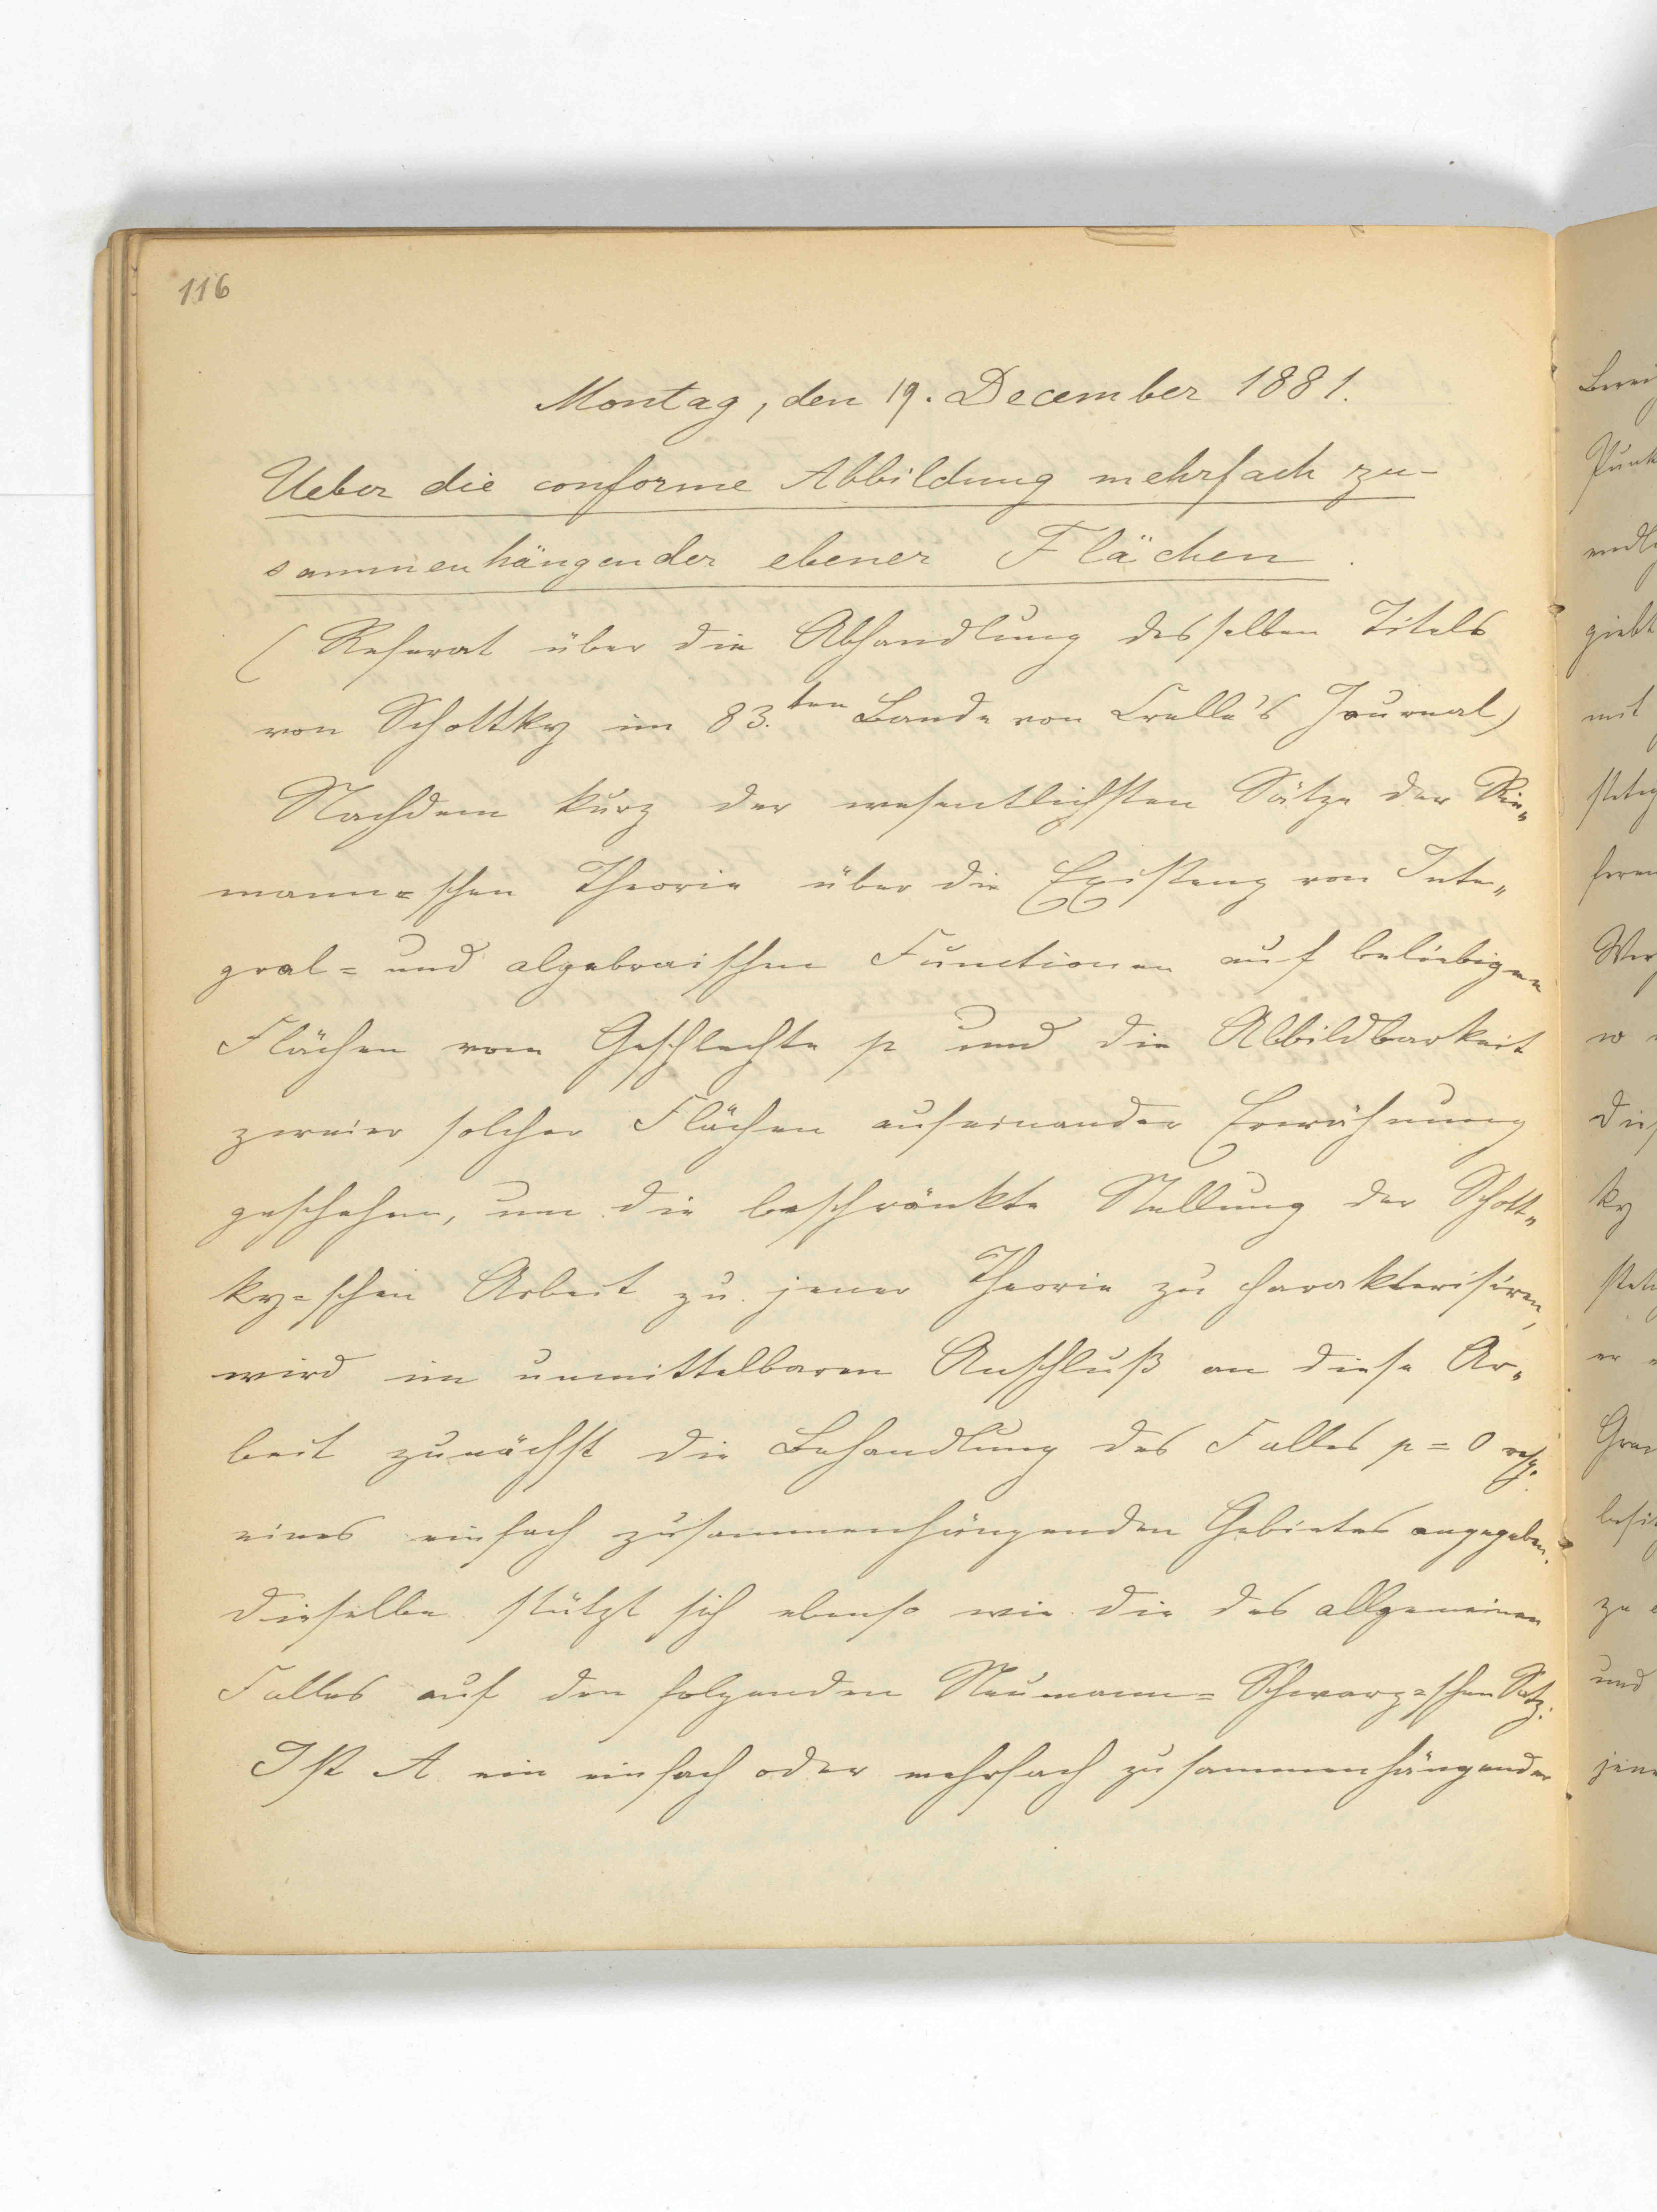 116
Montag, den 19. December 1881.
Ueber die conforme Abbildung mehrfach zu-
sammenhängender ebener Flächen.
(Referat über die Abhandlung desselben Titels
von Schottky im 83.ten Bande von Crelle's Journal)
Nachdem kurz der wesentlichsten Sätze der Rie„
mann=schen Theorie über die Existenz von Inte„
gral= und algebraischen Functionen auf beliebigen
Flächen vom Geschlechte p und die Abbildbarkeit
zweier solcher Flächen aufeinander Erwähnung
geschehen, um die beschränkte Stellung der Schott„
ky=schen Arbeit zu jener Theorie zu charakterisiren,
wird im unmittelbaren Anschluß an diese Ar„
beit zunächst die Behandlung des Falles p = 0 resp.
eines einfach zusammenhängenden Gebietes angegeben.
Dieselbe stützt sich ebenso wie die des allgemeinen
Falles auf den folgenden Neumann=Schwarz=schen Satz:
Ist A ein einfach oder mehrfach zusammenhängender